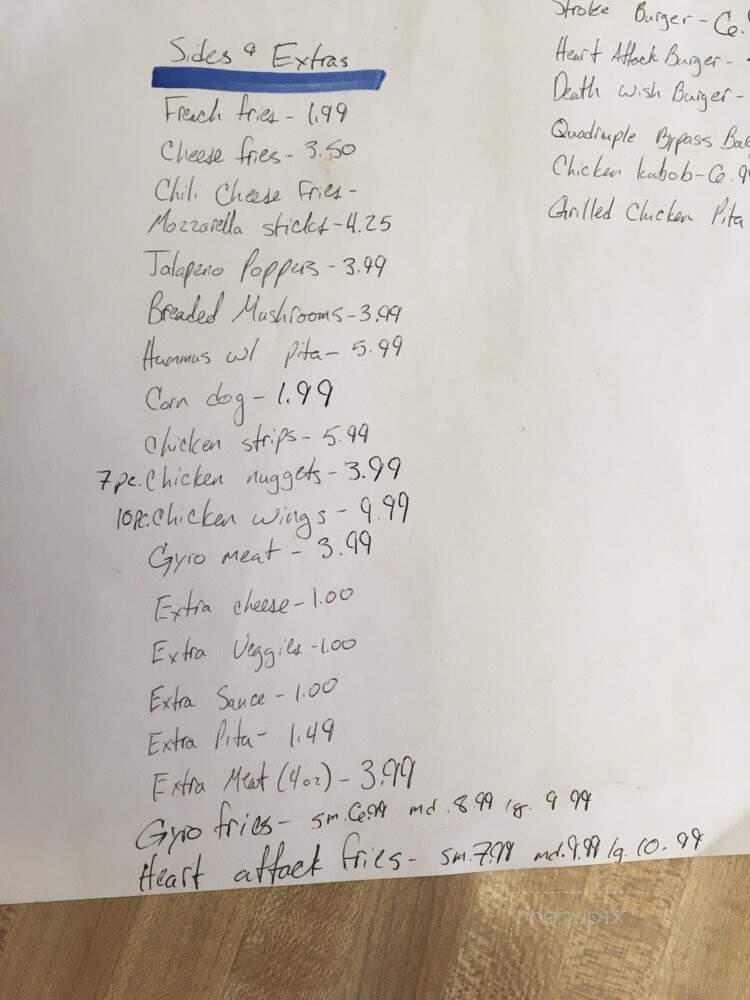 Sides & Extras
French fries - 1.99
Cheese fries - 3.50
Chili Cheese Fries -
Mozzarella sticks - 4.25
Jalapeno Poppers - 3.99
Breaded Mushrooms - 3.99
Hummus w/ pita - 5.99
Corn dog - 1.99
Chicken strips - 5.99
7pc. Chicken nuggets - 3.99
10pc. Chicken wings - 9.99
Gyro meat - 3.99
Extra cheese - 1.00
Extra Veggies - 1.00
Extra Sauce - 1.00
Extra Pita - 1.49
Extra Meat (4oz) - 3.99
Gyro fries - sm. 6.99 md. 8.99 lg. 9.99
Heart attack fries - sm. 7.99 md. 9.99 lg. 10.99
Stroke Burger - 6.
Heart Attack Burger -
Death Wish Burger -
Quadruple Bypass
Chicken kabob - 6.9
Grilled Chicken Pita
menupix